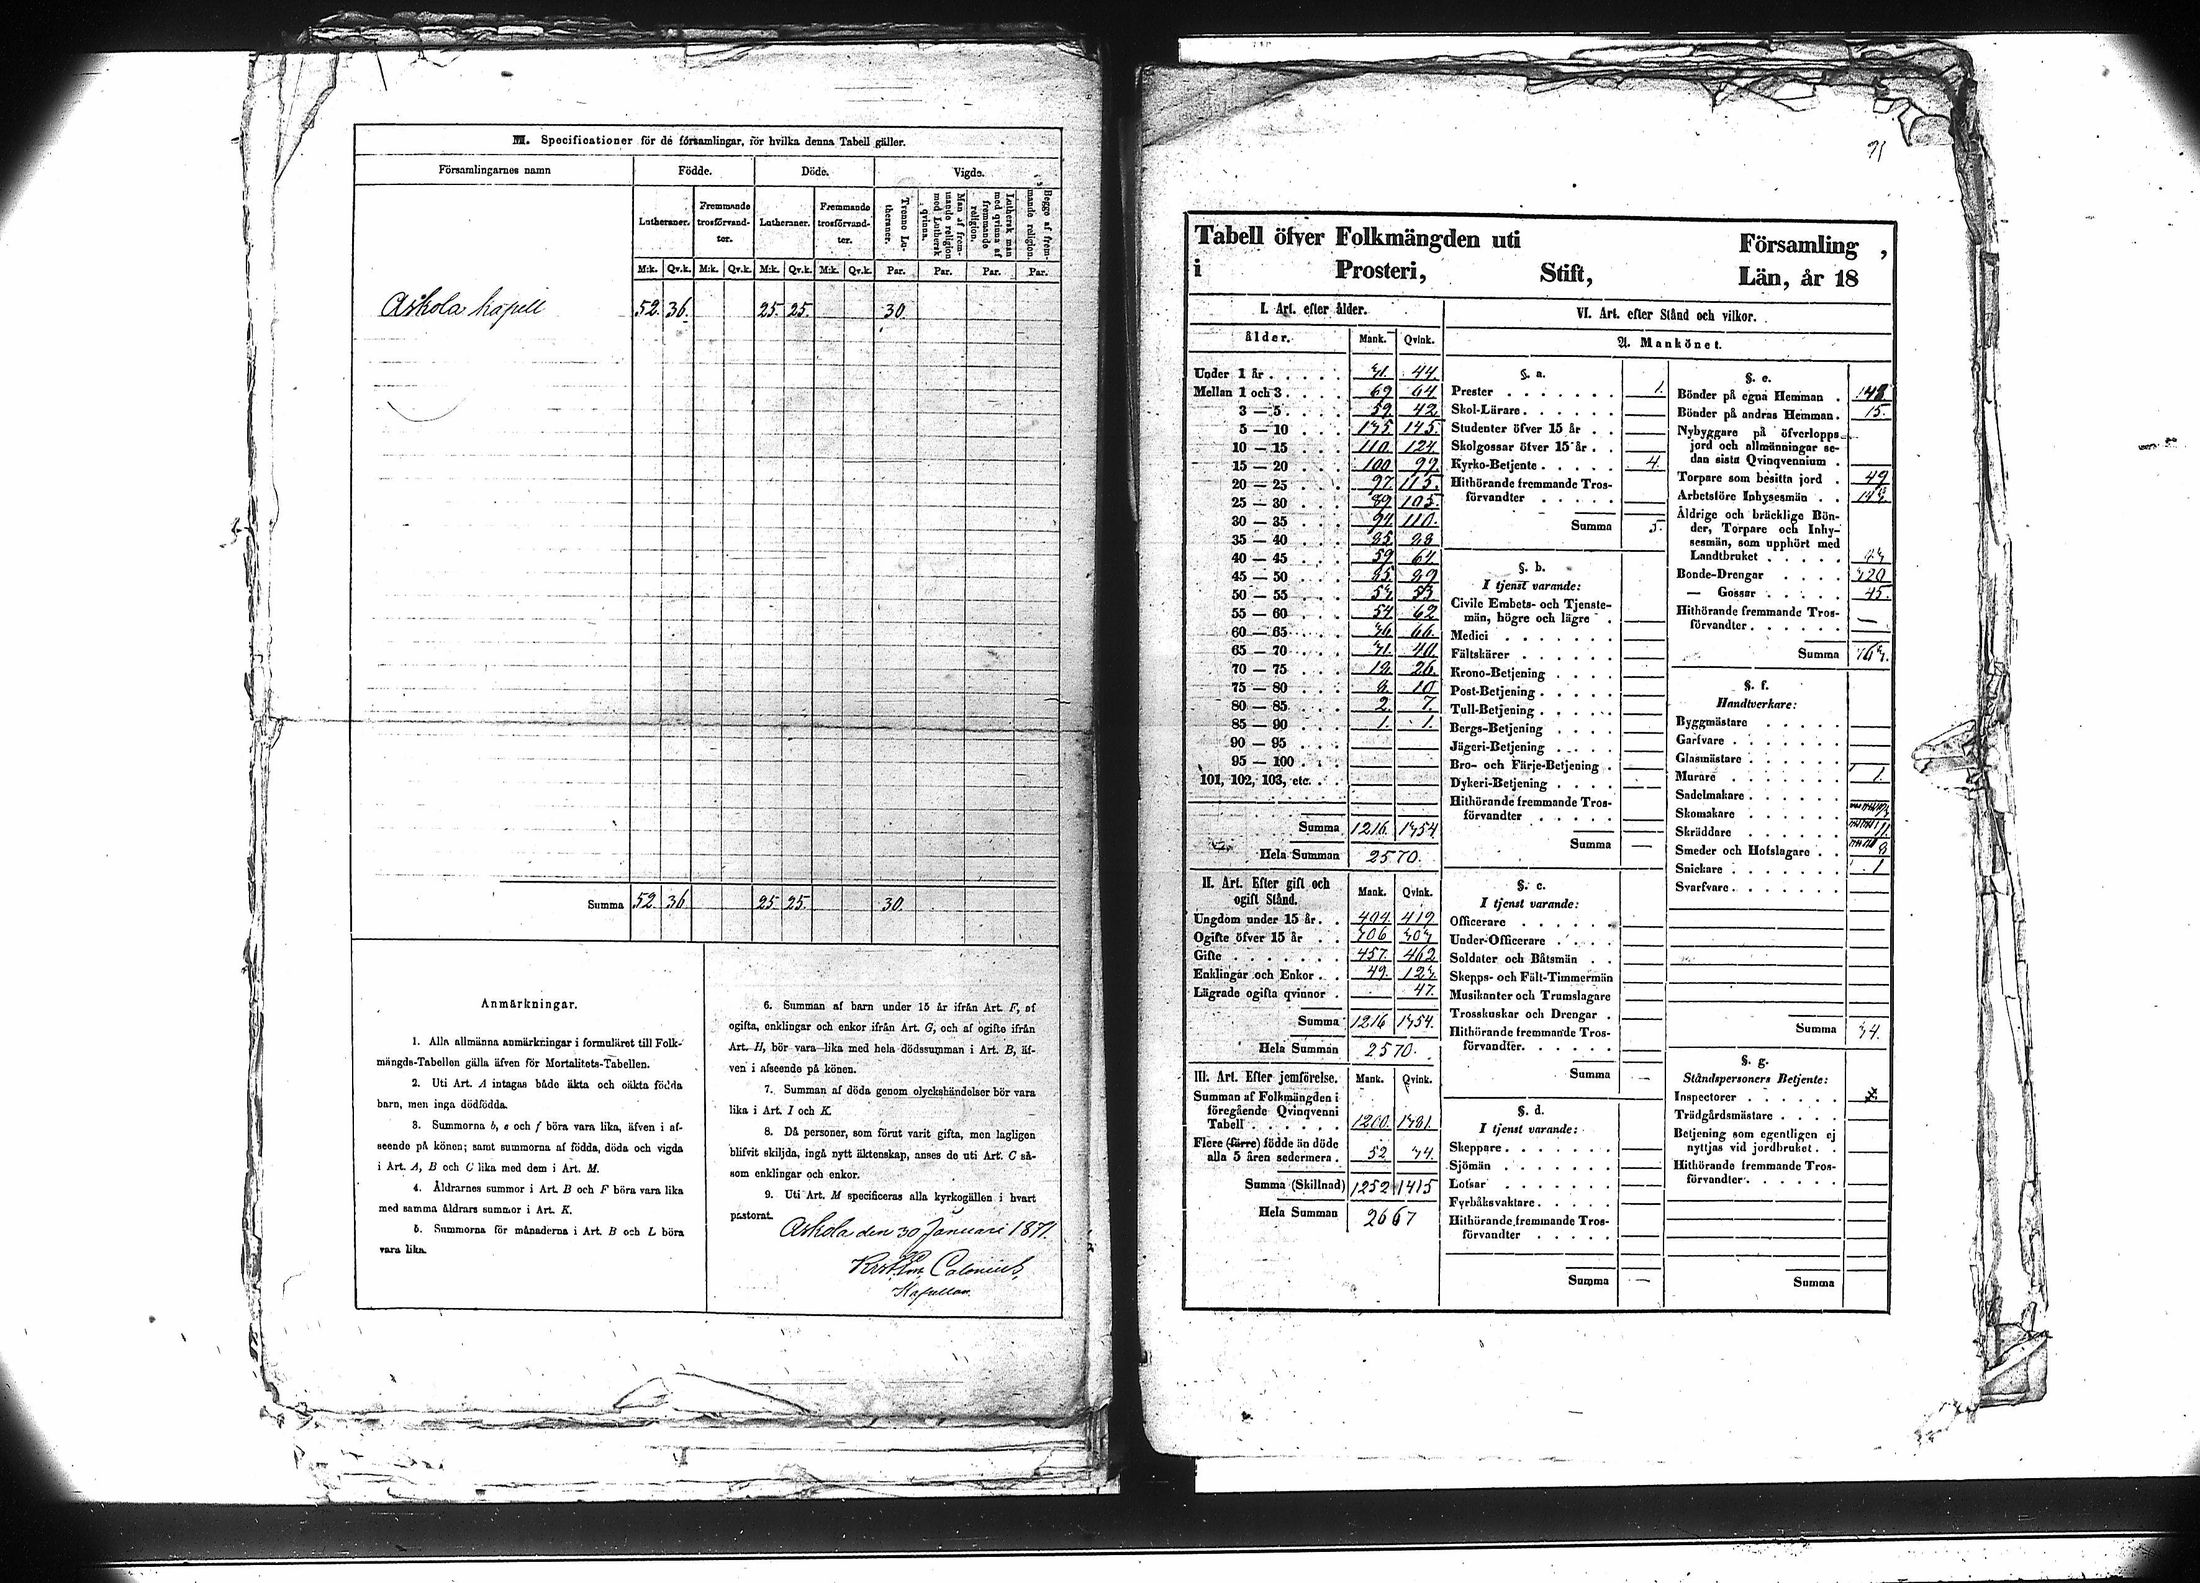 M. Specificationer för de församlingar, för hvilka denna Tabell gäller.
Församlingarnes namn
Födde. Döde. Vigde.
Lutheraner. Fremmande trosförvand-ter. Lutheraner. Fremmande trosförvand-ter. Trenne Lu-theraner. Man af frem-mande religion med Luthersk qvinna. Luthersk man med qvinna af fremmande religion. Begge af frem-mande religion.
M:k. Qv.k. M:k. Qv.k. M:k. Qv.k. M:k. Qv.k. Par. Par. Par. Par.
Askola kapell 52. 36. 25. 25. 30.
Summa 52. 36 25. 25. 30.
Anmärkningar.
1. Alla allmänna anmärkningar i formuläret till Folk-
mängds-Tabellen gälla äfven för Mortalitets-Tabellen.
2. Uti Art. A intagas både äkta och oäkta födda
barn, men inga dödfödda.
3. Summorna b, e och f böra vara lika, äfven i af-
seende på könen; samt summorna af födda, döda och vigda
i Art. A, B och C lika med dem i Art. M.
4. Åldrarnes summor i Art. B och F böra vara lika
med samma åldrars summor i Art. K.
5. Summorna för månaderna i Art. B och L böra
vara lika.
6. Summan af barn under 15 år ifrån Art. F, af
ogifta, enklingar och enkor ifrån Art. G, och af ogifte ifrån
Art. H, bör vara lika med hela dödssumman i Art. B, äf-
ven i afseende på könen.
7. Summan af döda genom olyckshändelser bör vara
lika i Art. I och K.
8. Då personer, som förut varit gifta, men lagligen
blifvit skiljda, ingå nytt äktenskap, anses de uti Art. C så-
som enklingar och enkor.
9. Uti Art. M specificeras alla kyrkogällen i hvart
pastorat.
Askola den 30 Januari 1871.
Calonius,
Kapellan.
91
Tabell öfver Folkmängden uti Församling,
i Prosteri, Stift, Län, år 18
I. Art. efter ålder.
ålder. Mank. Qvink.
Under 1 år 31. 44.
Mellan 1 och 3 69 64
3 — 5 59 42
5 — 10 135. 145.
10 — 15 110. 124.
15 — 20 100. 99.
20 — 25 97. 115.
25 — 30 89 105.
30 — 35 94. 110.
35 — 40
40 — 45 59 64.
45 — 50
50 — 55 53. 53
55 — 60 54 62
60 — 65 36. 66.
65 — 70 31. 40
70 — 75 18. 26.
75 — 80 8. 10
80 — 85 2. 7.
85 — 90 1. 1.
90 — 95
95 — 100
101, 102, 103, etc.
Summa 1216. 1354
Hela Summan 2570.
II. Art. Efter gift och
ogift Stånd. Mank. Qvink.
Ungdom under 15 år 404. 419.
Ogifte öfver 15 år 306 303
Gifte 457. 462
Enklingar och Enkor 49. 123.
Lägrade ogifta qvinnor 47.
Summa 1216 1354.
Hela Summan 2570.
III. Art. Efter jemförelse. Mank. Qvink.
Summan af Folkmängden i
föregående Qvinqvenni
Tabell 1200. 1381.
Flere (färre) födde än döde
alla 5 åren sedermera 52 34.
Summa (Skillnad) 1252 1415
Hela Summan 2667
VI. Art. efter Stånd och vilkor.
A. Mankönet.
§. a.
Prester 1.
Skol-Lärare
Studenter öfver 15 år
Skolgossar öfver 15 år
Kyrko-Betjente 4.
Hithörande fremmande Tros-
förvandter
Summa 5.
§. b.
I tjenst varande:
Civile Embets- och Tjenste-
män, högre och lägre
Medici
Fältskärer
Krono-Betjening
Post-Betjening
Tull-Betjening
Bergs-Betjening
Jägeri-Betjening
Bro- och Färje-Betjening
Dykeri-Betjening
Hithörande fremmande Tros-
förvandter
Summa —
§. c.
I tjenst varande:
Officerare
Under-Officerare
Soldater och Båtsmän
Skepps- och Fält-Timmermän
Musikanter och Trumslagare
Trosskuskar och Drengar
Hithörande fremmande Tros-
förvandter.
Summa —
§. d.
I tjenst varande:
Skeppare
Sjömän
Lotsar
Fyrbåksvaktare
Hithörande fremmande Tros-
förvandter
Summa —
§. e.
Bönder på egna Hemman
Bönder på andras Hemman. 15.
Nybyggare på öfverlopps-
jord och allmänningar se-
dan sista Qvinqvennium
Torpare som besitta jord 49
Arbetsföre Inhysesmän 143.
Åldrige och bräcklige Bön-
der, Torpare och Inhy-
sesmän, som upphört med
Landtbruket
Bonde-Drengar 320
— Gossar 45.
Hithörande fremmande Tros-
förvandter —
Summa 763.
§. f.
Handtverkare:
Byggmästare
Garfvare
Glasmästare
Murare 1.
Sadelmakare
Skomakare 13
Skräddare 11.
Smeder och Hofslagare 8
Snickare 1
Svarfvare
Summa 34.
§. g.
Ståndspersoners Betjente:
Inspectorer
Trädgårdsmästare
Betjening som egentligen ej
nyttjas vid jordbruket
Hithörande fremmande Tros-
förvandter
Summa